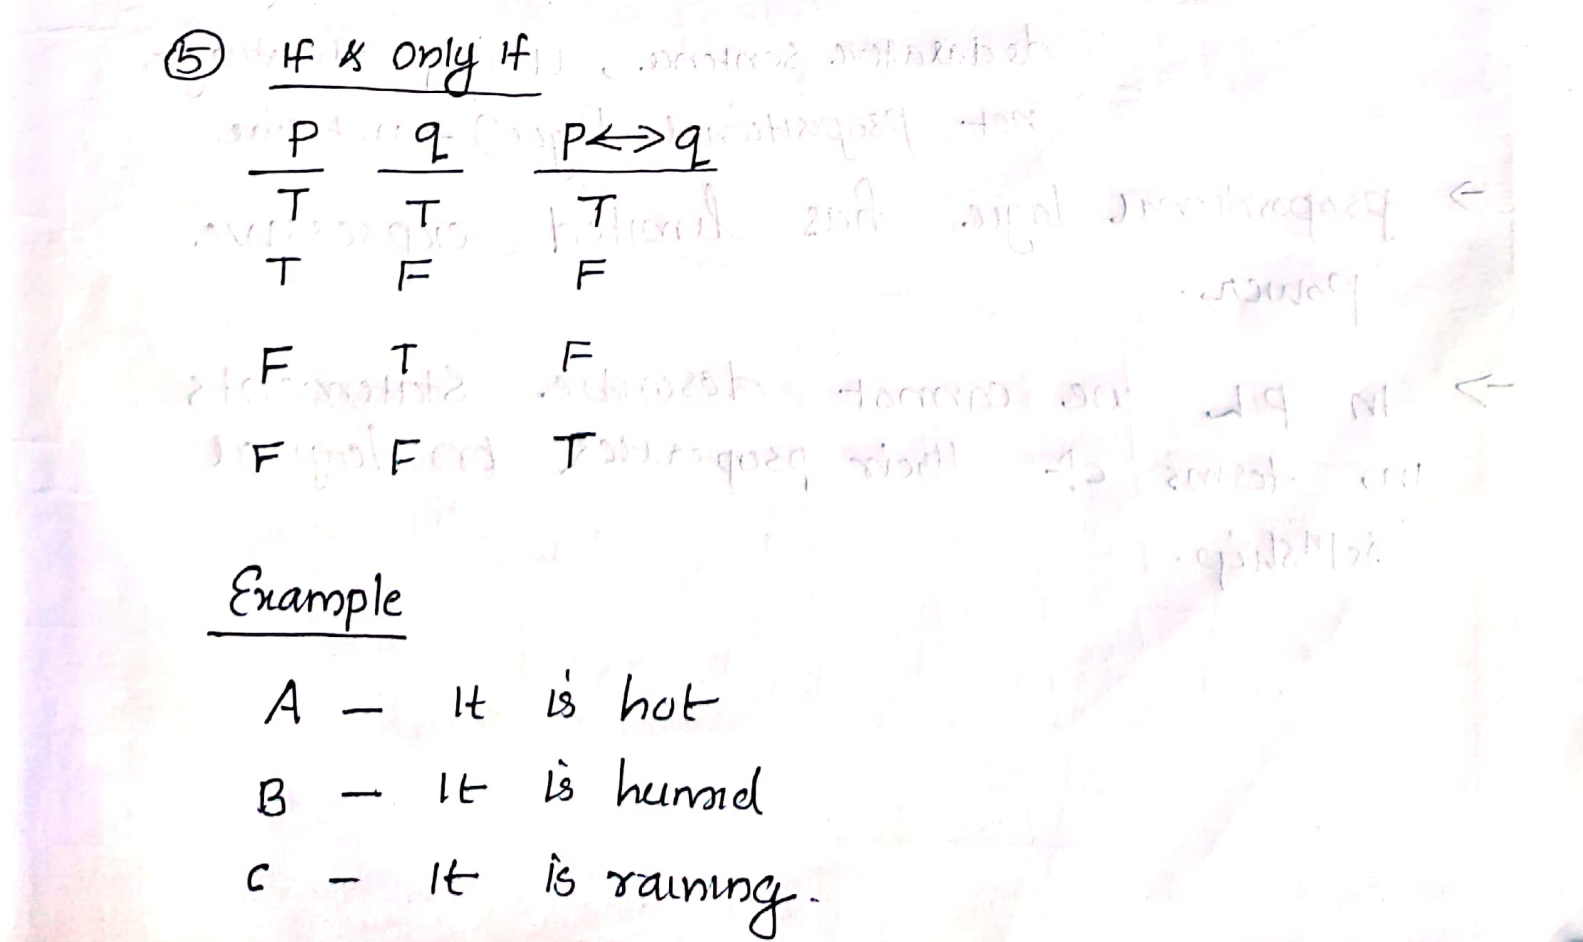 5 If & only If
P q P<->q
T T T
T F F
F T F
F F T
Example
A - It is hot
B - It is humid
C - It is raining.